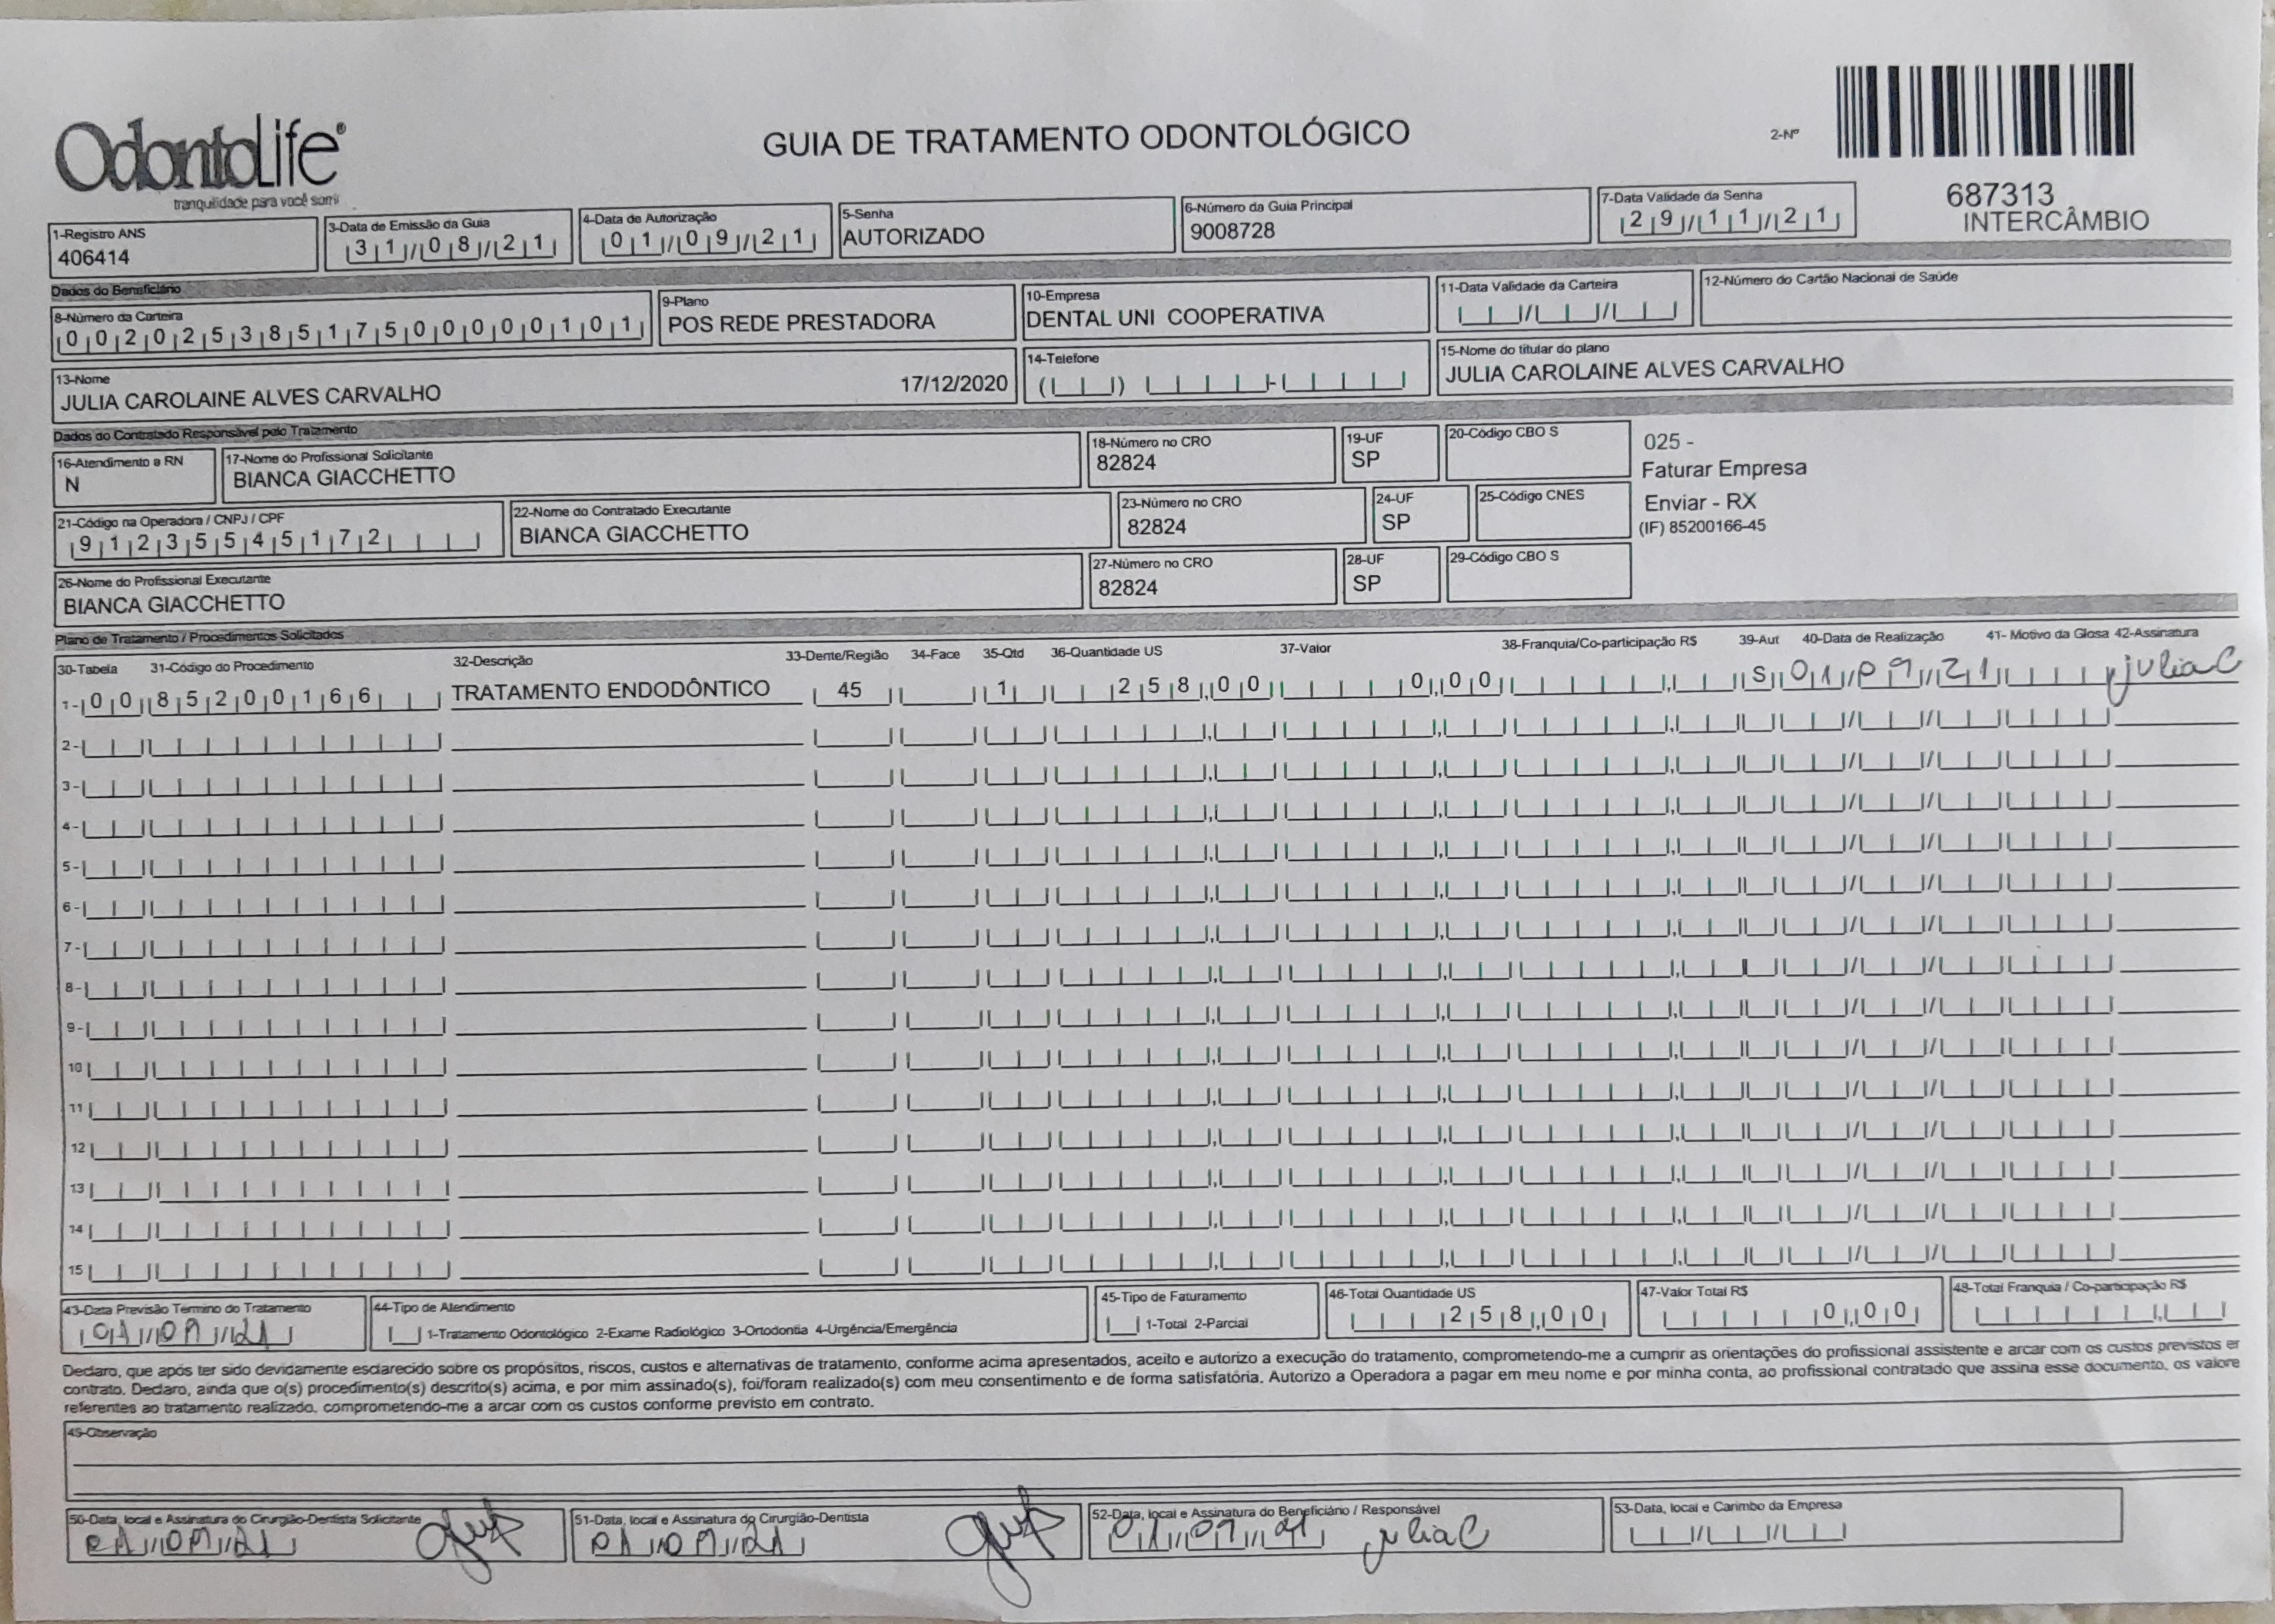 OdontoLife®
tranquilidade para você sorrir
GUIA DE TRATAMENTO ODONTOLÓGICO
2-Nº
687313
INTERCÂMBIO
1-Registro ANS
406414
3-Data de Emissão da Guia
31/08/21
4-Data de Autorização
01/09/21
5-Senha
AUTORIZADO
6-Número da Guia Principal
9008728
7-Data Validade da Senha
29/11/21
Dados do Beneficiário
8-Número da Carteira
00202538517500000101
9-Plano
POS REDE PRESTADORA
10-Empresa
DENTAL UNI COOPERATIVA
11-Data Validade da Carteira
12-Número do Cartão Nacional de Saúde
13-Nome
JULIA CAROLAINE ALVES CARVALHO 17/12/2020
14-Telefone
15-Nome do titular do plano
JULIA CAROLAINE ALVES CARVALHO
Dados do Contratado Responsável pelo Tratamento
16-Atendimento a RN
N
17-Nome do Profissional Solicitante
BIANCA GIACCHETTO
18-Número no CRO
82824
19-UF
SP
20-Código CBO S
025 -
Faturar Empresa
Enviar - RX
(IF) 85200166-45
21-Código na Operadora / CNPJ / CPF
91235545172
22-Nome do Contratado Executante
BIANCA GIACCHETTO
23-Número no CRO
82824
24-UF
SP
25-Código CNES
26-Nome do Profissional Executante
BIANCA GIACCHETTO
27-Número no CRO
82824
28-UF
SP
29-Código CBO S
Plano de Tratamento / Procedimentos Solicitados
30-Tabela 31-Código do Procedimento 32-Descrição 33-Dente/Região 34-Face 35-Qtd 36-Quantidade US 37-Valor 38-Franquia/Co-participação R$ 39-Aut 40-Data de Realização 41- Motivo da Glosa 42-Assinatura
1- 00 85200166 TRATAMENTO ENDODÔNTICO 45 1 258,00 0,00 S 01/09/21 julia C
2-
3-
4-
5-
6-
7-
8-
9-
10
11
12
13
14
15
43-Data Previsão Término do Tratamento
01/09/21
44-Tipo de Atendimento
1-Tratamento Odontológico 2-Exame Radiológico 3-Ortodontia 4-Urgência/Emergência
45-Tipo de Faturamento
1-Total 2-Parcial
46-Total Quantidade US
258,00
47-Valor Total R$
0,00
48-Total Franquia / Co-participação R$
Declaro, que após ter sido devidamente esclarecido sobre os propósitos, riscos, custos e alternativas de tratamento, conforme acima apresentados, aceito e autorizo a execução do tratamento, comprometendo-me a cumprir as orientações do profissional assistente e arcar com os custos previstos er
contrato. Declaro, ainda que o(s) procedimento(s) descrito(s) acima, e por mim assinado(s), foi/foram realizado(s) com meu consentimento e de forma satisfatória. Autorizo a Operadora a pagar em meu nome e por minha conta, ao profissional contratado que assina esse documento, os valore
referentes ao tratamento realizado, comprometendo-me a arcar com os custos conforme previsto em contrato.
49-Observação
50-Data, local e Assinatura do Cirurgião-Dentista Solicitante
01/09/21
51-Data, local e Assinatura do Cirurgião-Dentista
01/09/21
52-Data, local e Assinatura do Beneficiário / Responsável
01/09/21 julia C
53-Data, local e Carimbo da Empresa